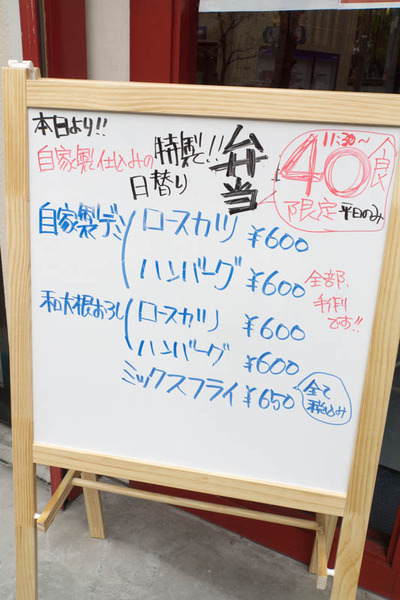 本日より!!
自家製仕込みの特製で!!
日替り
弁当
11:30〜
40食
限定 平日のみ
自家製デミ
ロースカツ ¥600
ハンバーグ ¥600
全部、
手作り
です!!
和大根おろし
ロースカツ ¥600
ハンバーグ ¥600
ミックスフライ ¥650
全て
税込み